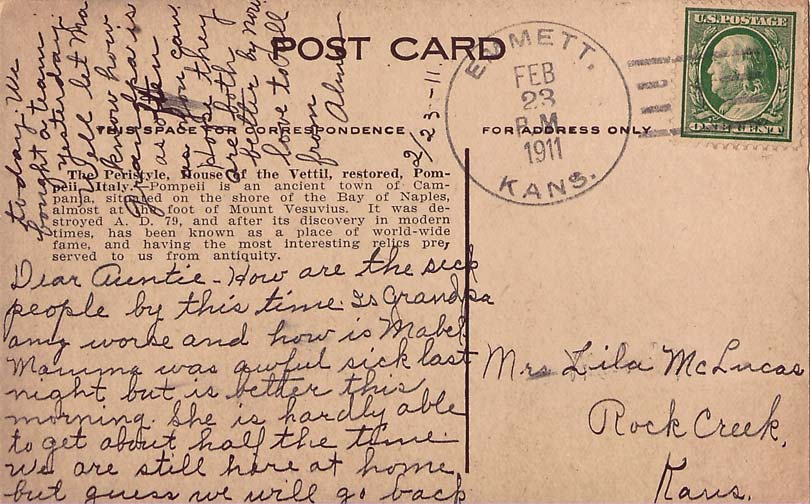 POST CARD
U.S. POSTAGE
ONE CENT
EMMETT.
FEB
23
P.M
1911
KANS.
THIS SPACE FOR CORRESPONDENCE
FOR ADDRESS ONLY
The Peristyle, House of the Vettii, restored, Pom-
peii, Italy.—Pompeii is an ancient town of Cam-
pania, situated on the shore of the Bay of Naples,
almost at the foot of Mount Vesuvius. It was de-
stroyed A. D. 79, and after its discovery in modern
times, has been known as a place of world-wide
fame, and having the most interesting relics pre-
served to us from antiquity.
Dear Auntie - How are the sick
people by this time. Is Grandpa
any worse and how is Mabel
Mamma was awful sick last
night but is better this
morning. She is hardly able
to get about half the time.
We are still here at home
but guess we will go back
today. We
bought a team
yesterday.
Well let Ma
know how
Grandpa is
as often
as you can
Hope they
are both
better by now
love to all
from Alma
2/23-11.
Mrs Lila McLucas
Rock Creek,
Kans.